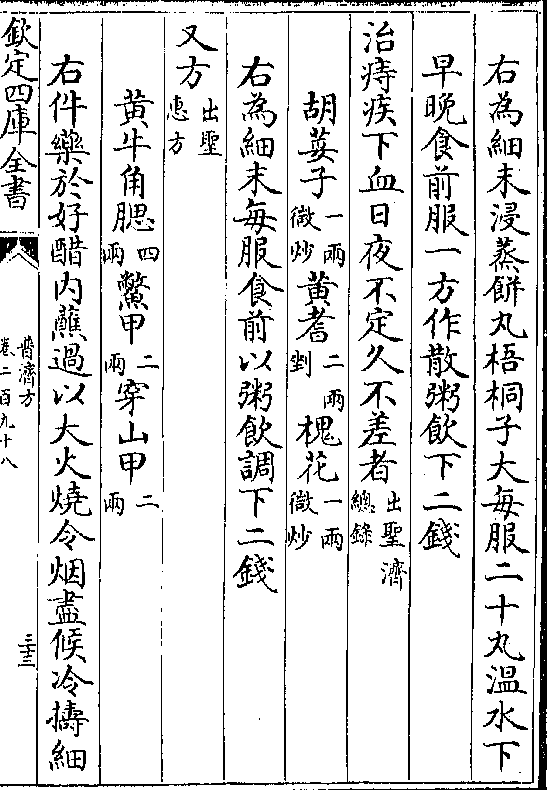 右為細末浸蒸餅丸梧桐子大每服二十丸溫水下
早晚食前服一方作散粥飲下二錢
治痔疾下血日夜不定久不差者出聖濟總錄
胡荽子一兩微炒黃耆二兩剉槐花一兩微炒
右為細末每服食前以粥飲調下二錢
又方出聖惠方
黃牛角腮四兩鱉甲二兩穿山甲二兩
右件藥於好醋內蘸過以大火燒令烟盡候冷擣細
欽定四庫全書
普濟方
卷二百九十八
三十三